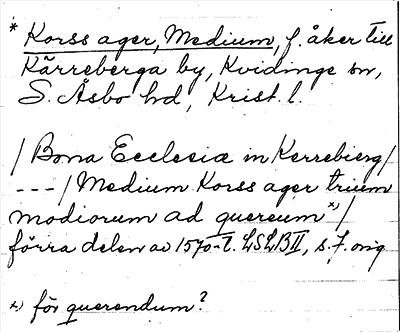 * Korss ager, Medium, f. åker till
Kärreberga by, Kvidinge sn,
S. Åsbo hd, Krist. l.
/ Bona Ecclesiæ in Kerrebierg/
---/ Medium Korss ager trium
modiorum ad quereum *)/
förra delen av 1570-t. LSLB II, s. 7. orig
*) för querendum?